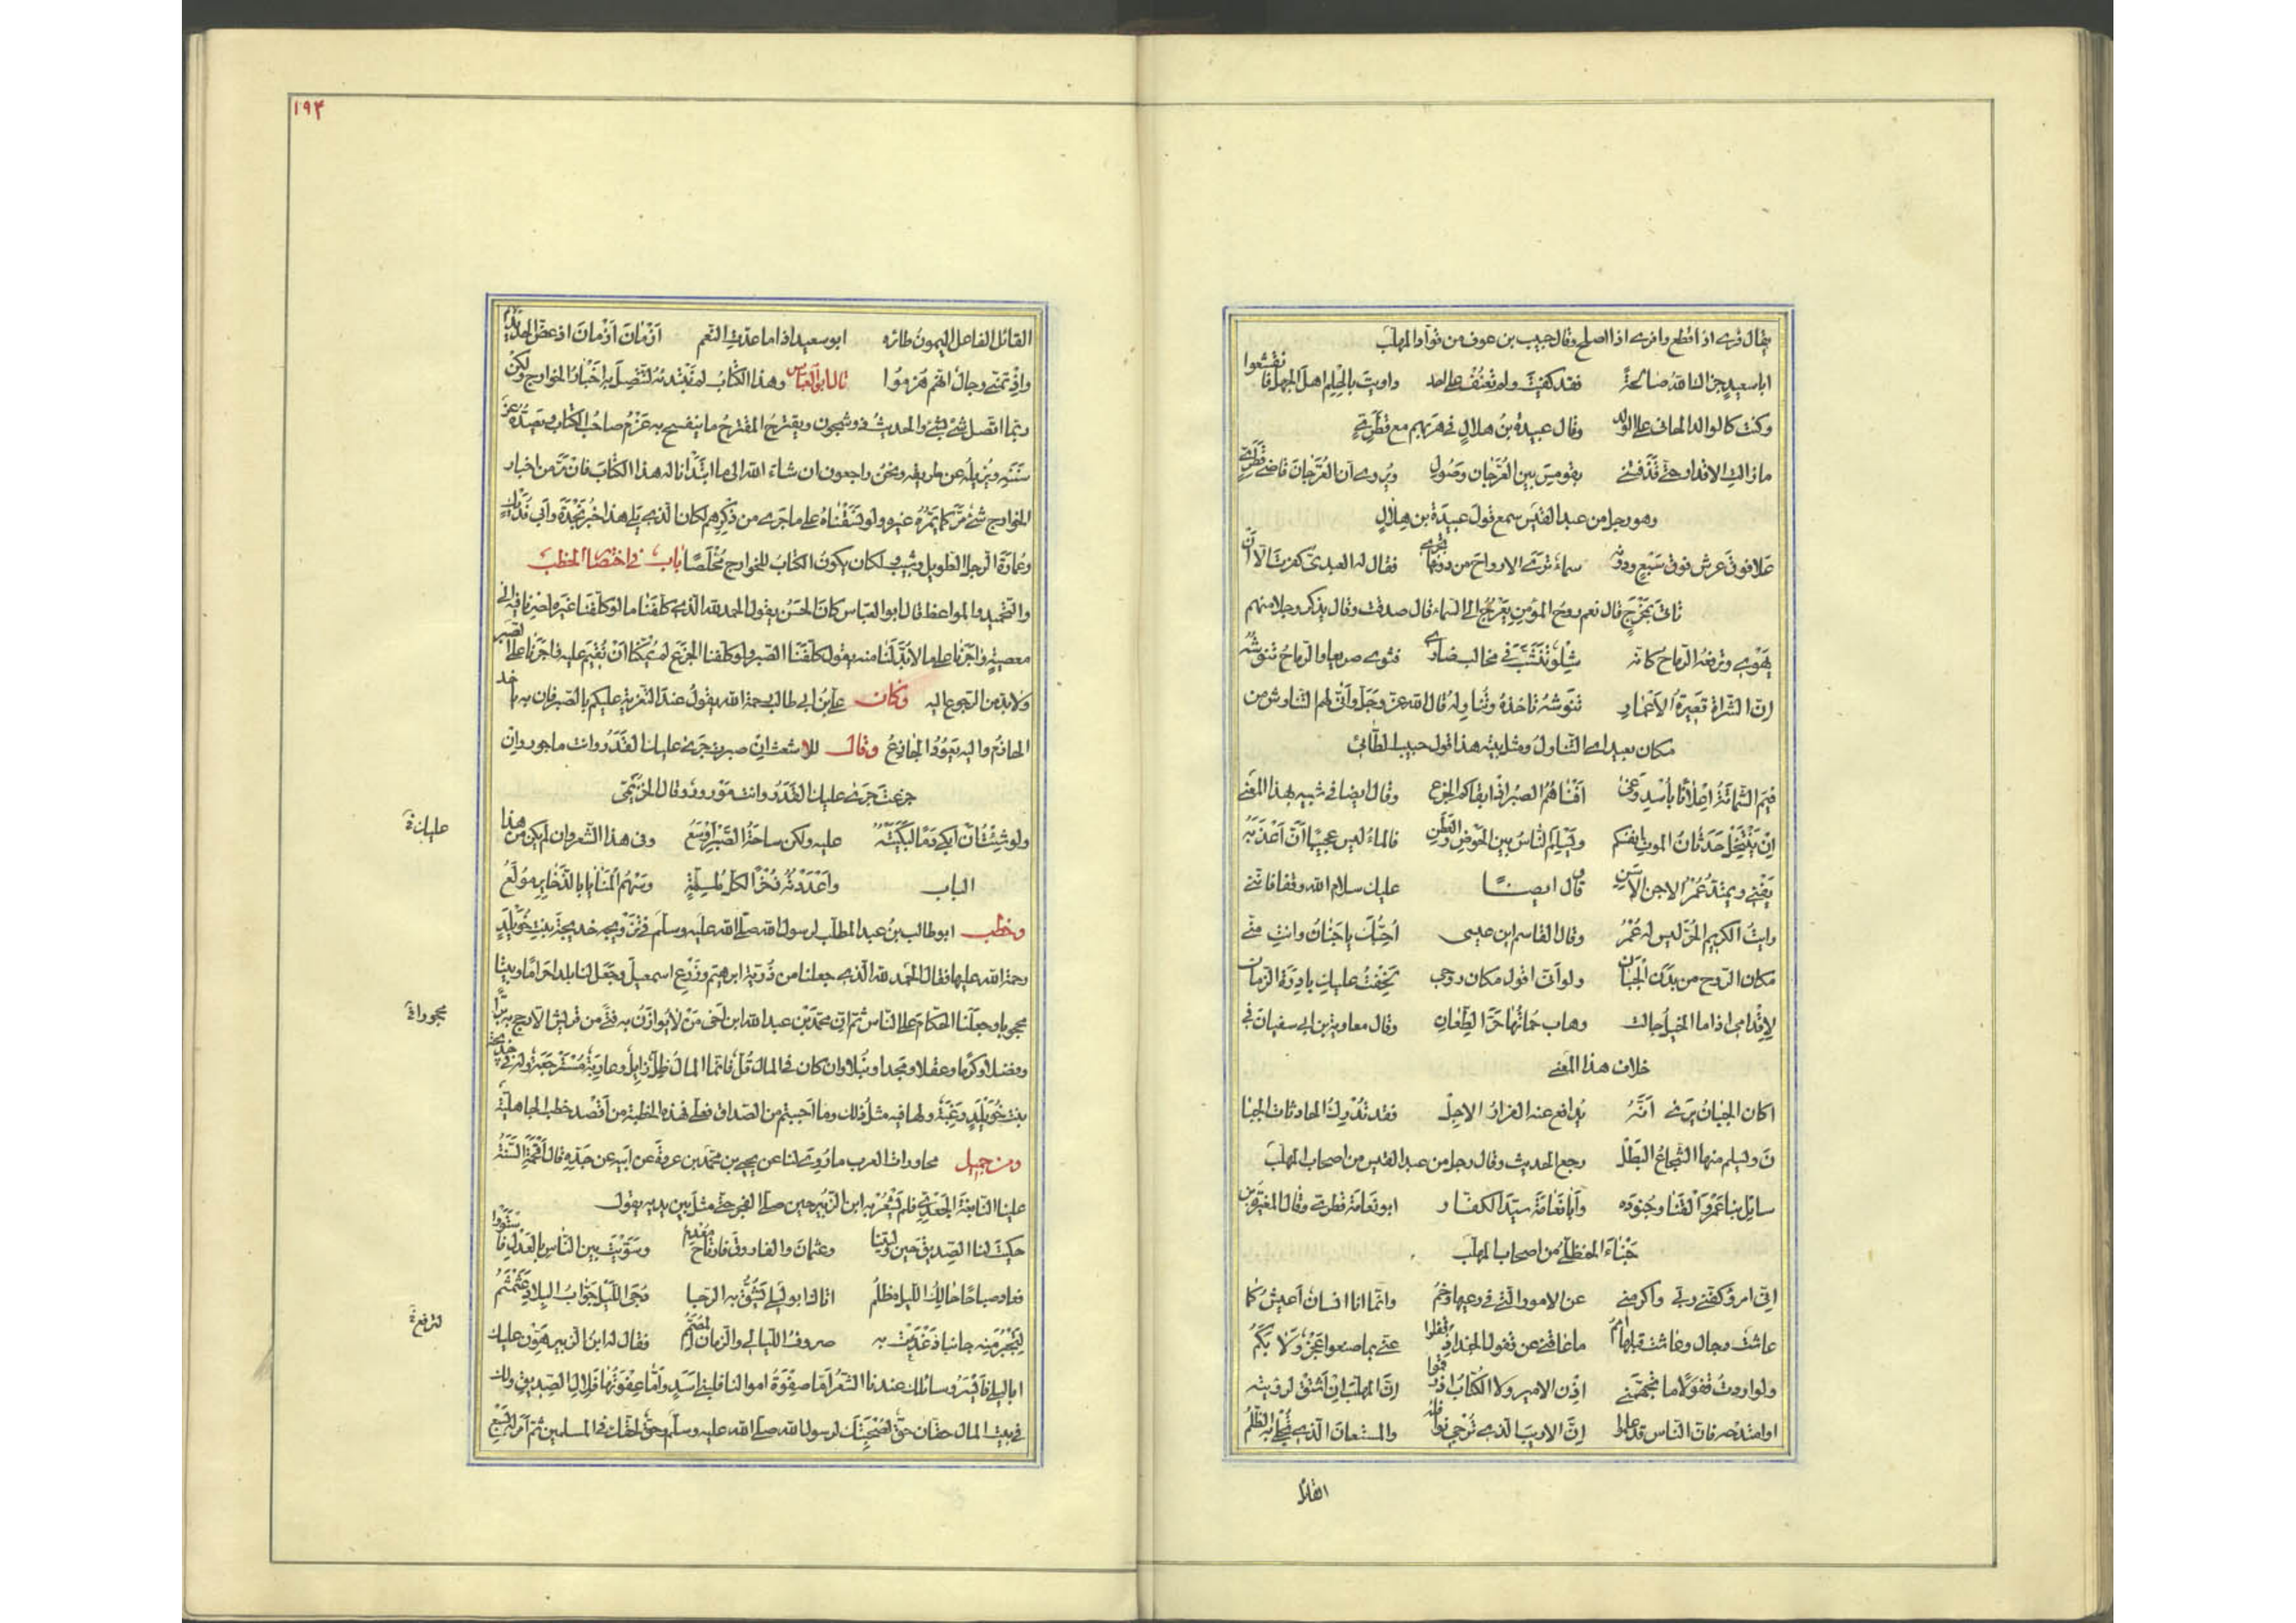 يقال فرى اذا قطع وافرى اذا اصلح وقال حبيب بن عوف من قواد المهلب
ابا سعيد جزاك الله صالحة فقد كفيت ولم تعنف على احد داويت بالحلم اهل الجهل فانقشعوا
وكنت كالوالد الحاني على الولد وقال عبيدة بن هلال في هربهم مع قطري
ما زالت الاقدار حتى قذفنني بقومس بين الفرجان وصول ويروى ان الفرجان قاضي قطري
وهو رجل من عبد القيس سمع قول عبيدة بن هلال
علا فوق عرش فوق سبع ودونه سماء ترى الارواح من دونها تجري فقال له العبدي كفرت الا ان
تاتي بمخرج قال نعم روح المؤمن يعرج الى السماء قال صدقت وقال يذكر رجلا منهم
يهوي وترفعه الرماح كانه شلو تنشب في مخالب ضاري فثوى صريعا والرماح تنوشه
ان الشراة قصيرة الاعمار تنوشه تاخذه وتناوله قال الله عز وجل وانى لهم التناوش من
مكان بعيد اي التناول ومثل بيته هذا قول حبيب الطائي
فيم الشماتة اعلانا باسد وغى افناهم الصبر اذ ابقاكم الجزع وقال ايضا في شبيه بهذا المعنى
ان ينتخل حدثان الموت انفسكم ويسلم الناس بين الحوض والعطن فالماء ليس عجيبا ان اعذبه
يفنى ويمتد عمر الآجن الاسن وقال ايضا عليك سلام الله وقفا فانني
رايت الكريم الحر ليس له عمر وقال القاسم ابن عيسى احبك يا جنان وانت مني
مكان الروح من بدن الجبان ولو اني اقول مكان روحي لخفت عليك بادرة الزمان
لاقدامي اذا ما الخيل جالت وهاب حماتها حر الطعان وقال معاوية بن ابي سفيان في
خلاف هذا المعنى
اكان الجبان يرى انه يدافع عنه الفرار الاجل فقد تدرك الحادثات الجبا
ن ويسلم منها الشجاع البطل رجع الحديث وقال رجل من عبد القيس من اصحاب المهلب
سائل بنا عمرو القنا وجنوده وابا نعامة سيد الكفار ابو نعامة قطري وقال المغيرة بن
حبناء الحنظلي من اصحاب المهلب
اني امرؤ كفني ربي واكرمني عن الامور التي في رعيها وخم وانما انا انسان اعيش كما
عاشت رجال وعاشت قبلها امم ما عاقني عن قفول الجند اذ قفلوا عني بما صنعوا عجز ولا بكم
ولو اردت قفولا ما تجهمني اذن الامير ولا الكتاب اذ رقموا ان المهلب ان اشتق لرؤيته
او امتدحه فان الناس قد علموا ان الاريب الذي ترجى نوافله والمستعان الذي تجلى به الظلم
القائل
١٩٣
القائل الفاعل الميمون طائره ابو سعيد اذا ما عدت النعم ازمان ازمان اذ عض الحديد بهم
واذ تمنى رجال انهم هزموا قال ابو العباس وهذا الكتاب لم نبتدئه لتتصل به اخبار الخوارج ولكن
ربما اتصل شئ بشئ والحديث ذو شجون ويقترح المقترح ما يفسح به عزم صاحب الكتاب ويصده عن
سننه ويزيله عن طريقه ونحن راجعون ان شاء الله الى ما ابتدانا له هذا الكتاب فان مر من اخبار
الخوارج شئ مر كما يمر غيره ولو نسقناه على ما جرى من ذكرهم لكان الذي يلي هذا خبر نجدة وابي فديك
وعمارة الرجل الطويل وشبيب ولكان يكون الكتاب للخوارج مخلصا باب في اختصار الخطب
والتحميد والمواعظ قال ابو العباس كان الحسن يقول الحمد لله الذي كلفنا ما لو كلفنا غيره لصرنا فيه الى
معصيته واجرنا على ما لابد لنا منه يقول كلفنا الصبر ولو كلفنا الجزع لم يمكنا ان نقيم عليه واجرنا على الصبر
ولابد من الرجوع اليه وكان علي بن ابي طالب رحمة الله يقول عند التعزية عليكم بالصبر فان به ياخذ
الحازم واليه يعود الجازع وقال للاشعث ان صبرت جرى عليك القدر وانت ماجور وان
جزعت جرى عليك القدر وانت موزور وقال الخريمي
عليك ة
ولو شئت ان ابكي دما لبكيته عليه ولكن ساحة الصبر اوسع وفي هذا الشعر وان لم يكن من هذا
الباب واعددته ذخرا لكل ملمة وسهم المنايا بالذخاير مولع
وخطب ابو طالب بن عبد المطلب لرسول الله صلى الله عليه وسلم في تزويجه خديجة بنت خويلد
رحمة الله عليها فقال الحمد لله الذي جعلنا من ذرية ابرهيم وزرع اسمعيل وجعل لنا بلدا حراما وبيتا
محجوبا وجعلنا الحكام على الناس ثم ان محمد بن عبد الله ابن اخي من لا يوازن به فتى من قريش الا رجح به برا
وفضلا وكرما وعقلا ومجدا ونبلا وان كان في المال قل فانما المال ظل زايل وعارية مسترجعة وله في خديجة
بنت خويلد رغبة ولها فيه مثل ذلك وما احببتم من الصداق فعلي فهذه الخطبة من اقصد خطب الجاهلية
ومن جميل محاورات العرب ما روي لنا عن يحيى بن محمد بن عروة عن ابيه عن جده قال اقحمت السنة
علينا النابغة الجعدي فلم يشعر به ابن الزبير حين صلى الفجر حتى مثل بين يديه يقول
حكيت لنا الصديق حين وليتنا وعثمان والفاروق فارتاح معدم وسويت بين الناس بالعدل فاستووا
فعاد صباحا حالك الليل مظلم اتاك ابو ليلى يشق به الدجا دجى الليل جواب البلاد عثمثم
لترفع ة
لتجبر منه جانبا ذعذعت به صروف الليالي والزمان المصمم فقال له ابن الزبير هون عليك
ابا ليلى فايسر وسائلك عندنا الشعر اما صفوة اموالنا فلبني اسد واما عفوتها فلآل الصديق ولك
في بيت المال حقان حق لصحبتك لرسول الله صلى الله عليه وسلم وحق لحقك في المسلمين ثم امر له بسبع